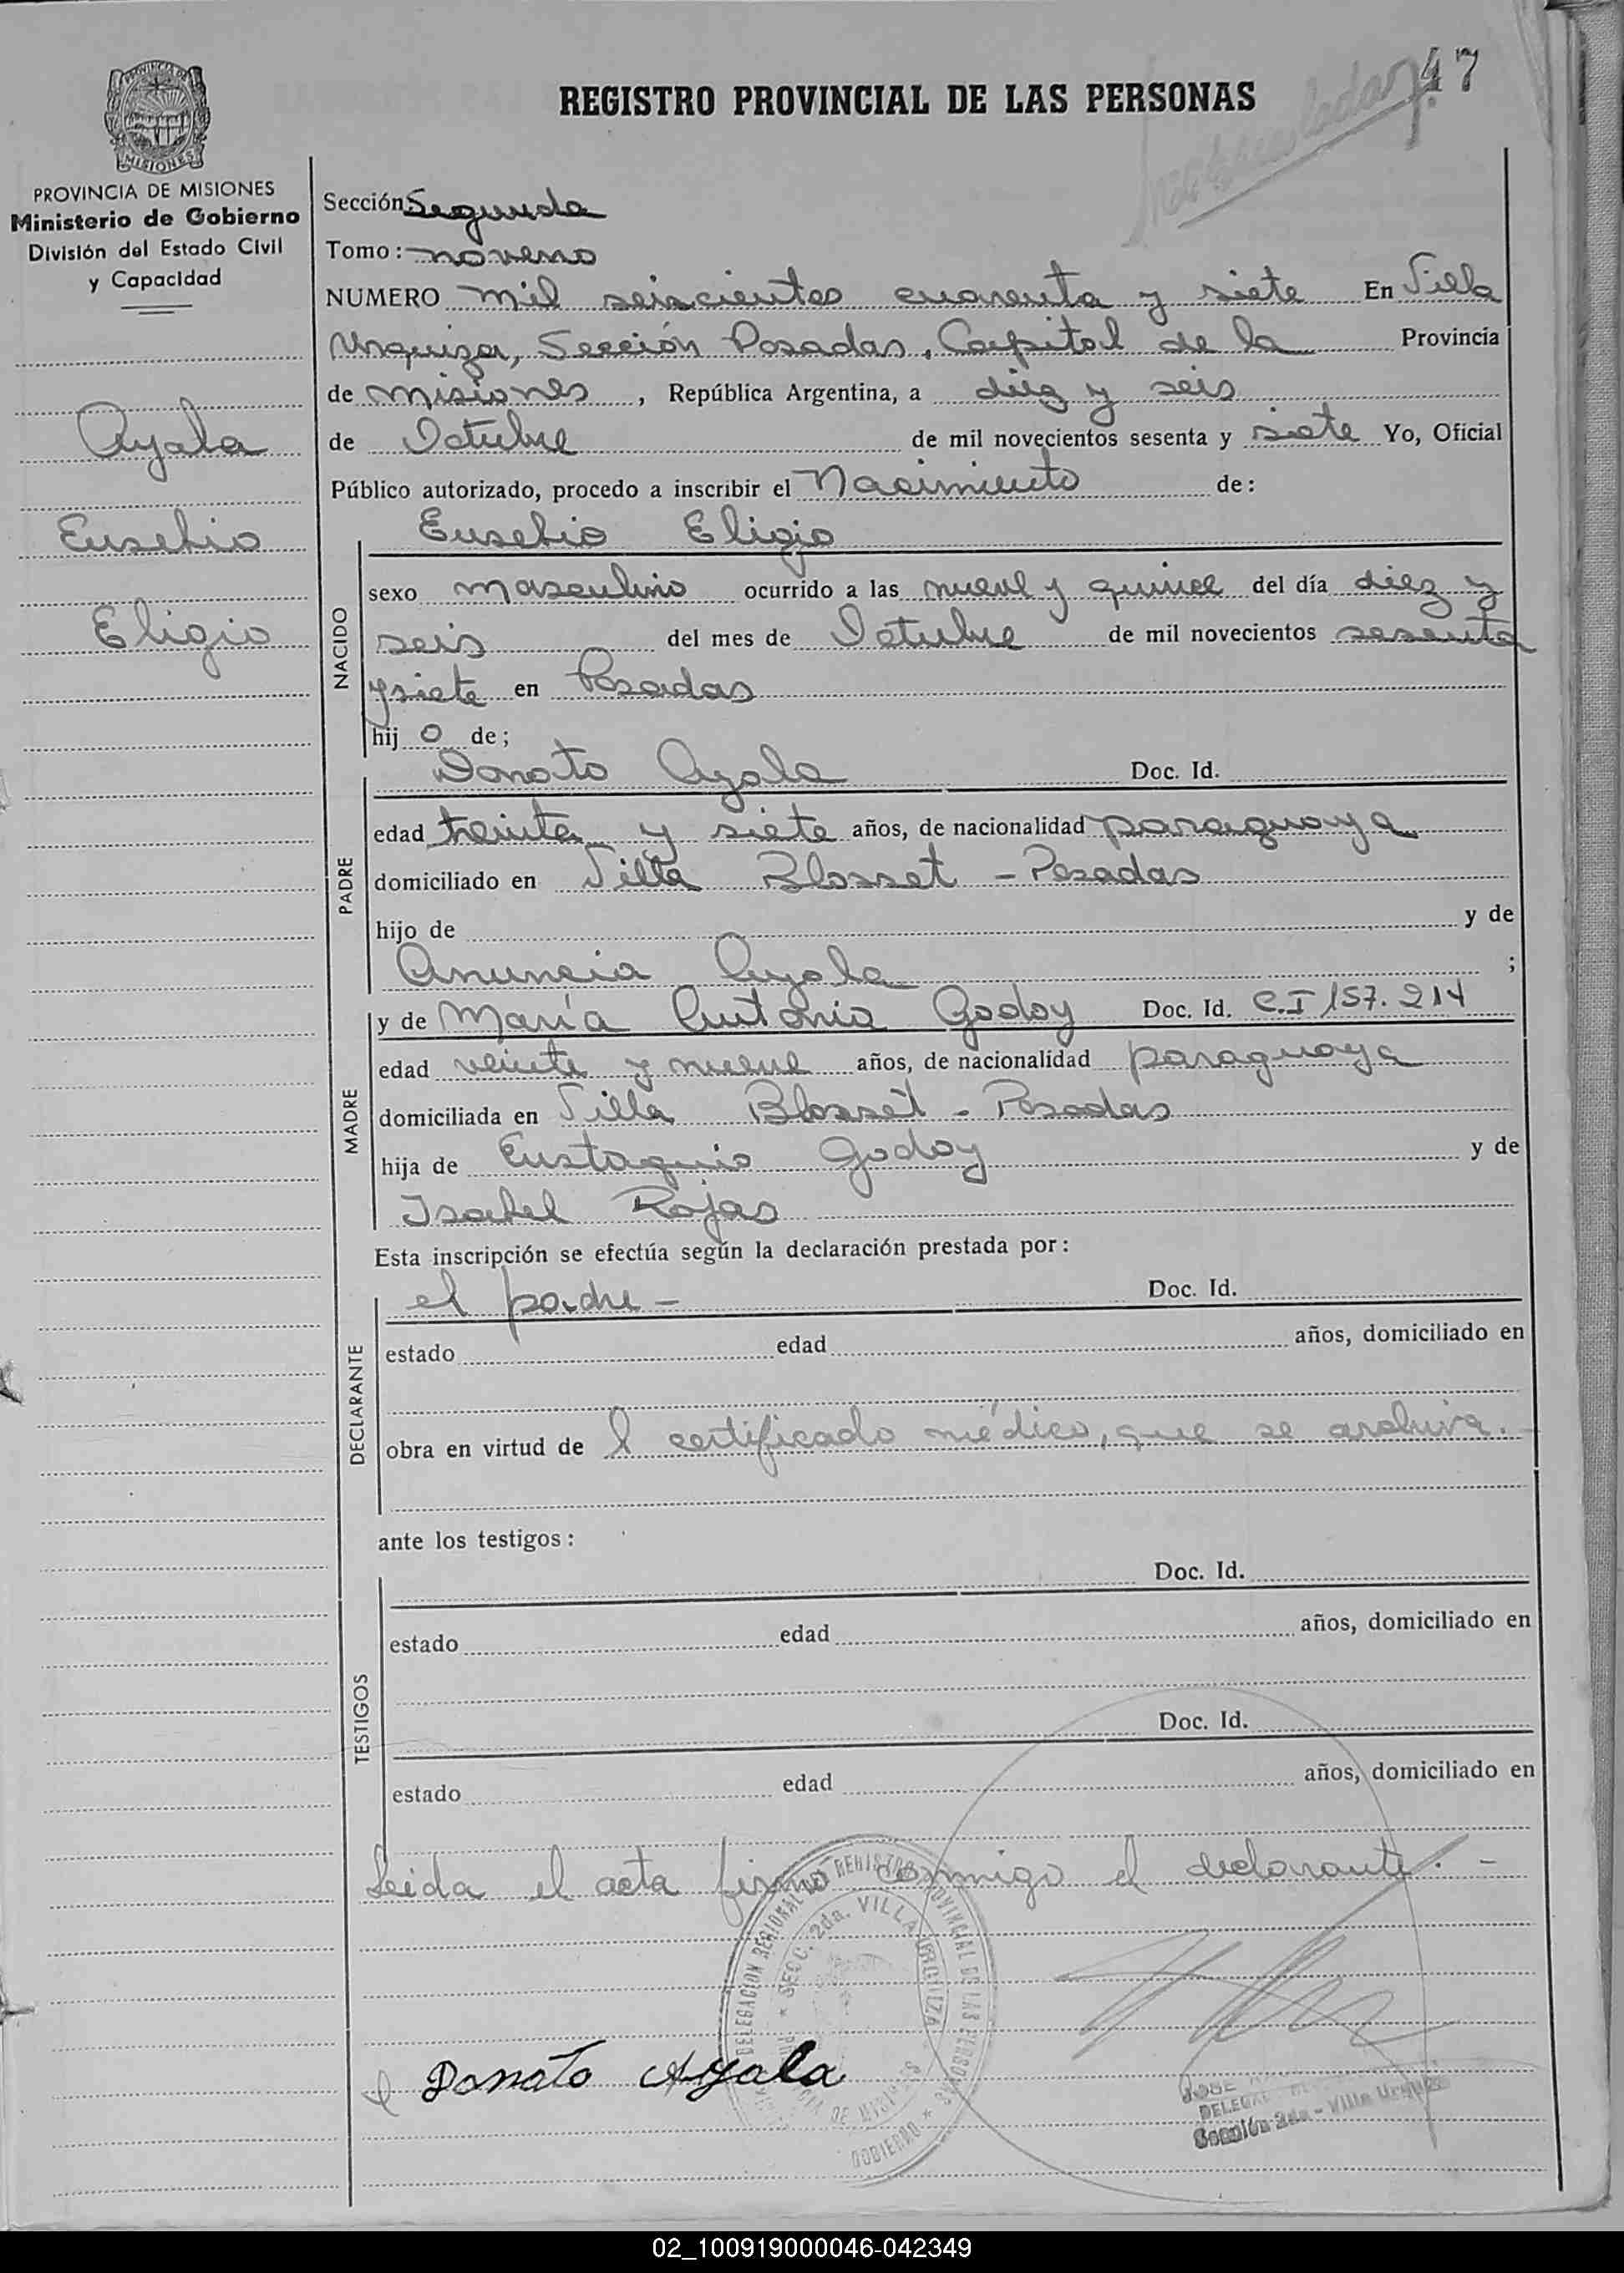 47
REGISTRO PROVINCIAL DE LAS PERSONAS
PROVINCIA DE MISIONES
MISIONES
PROVINCIA DE MISIONES
Ministerio de Gobierno
División del Estado Civil
y Capacidad
Ayala
Eusebio
Eligio
Sección: Segunda
Tomo: noveno
NUMERO mil seiscientos cuarenta y siete En Villa
Urquiza, Sección Posadas, Capital de la Provincia
de Misiones, República Argentina, a diez y seis
de Octubre de mil novecientos sesenta y siete Yo, Oficial
Público autorizado, procedo a inscribir el Nacimiento de:
NACIDO
Eusebio Eligio
sexo masculino ocurrido a las nueve y quince del día diez y
seis del mes de Octubre de mil novecientos sesenta
y siete en Posadas
hijo de;
PADRE
Donato Ayala Doc. Id.
edad treinta y siete años, de nacionalidad paraguaya
domiciliado en Villa Blosset - Posadas
hijo de y de
Anuncia Ayala ;
MADRE
y de María Antonia Godoy Doc. Id. C.I 157.214
edad veinte y nueve años, de nacionalidad paraguaya
domiciliada en Villa Blosset - Posadas
hija de Eustaquio Godoy y de
Isabel Rojas
Esta inscripción se efectúa según la declaración prestada por:
DECLARANTE
el padre - Doc. Id.
estado edad años, domiciliado en
obra en virtud de l certificado médico, que se archiva.-
ante los testigos:
TESTIGOS
Doc. Id.
estado edad años, domiciliado en
Doc. Id.
estado edad años, domiciliado en
Leida el acta firmó conmigo el declarante.-
DELEGACION REGIONAL REGISTRO PROVINCIAL DE LAS PERSONAS
SECC. 2da. VILLA URQUIZA
DE MISIONES
GOBIERNO
Donato Ayala
JOSE
Sección 2da - Villa Urquiza
02_100919000046-042349